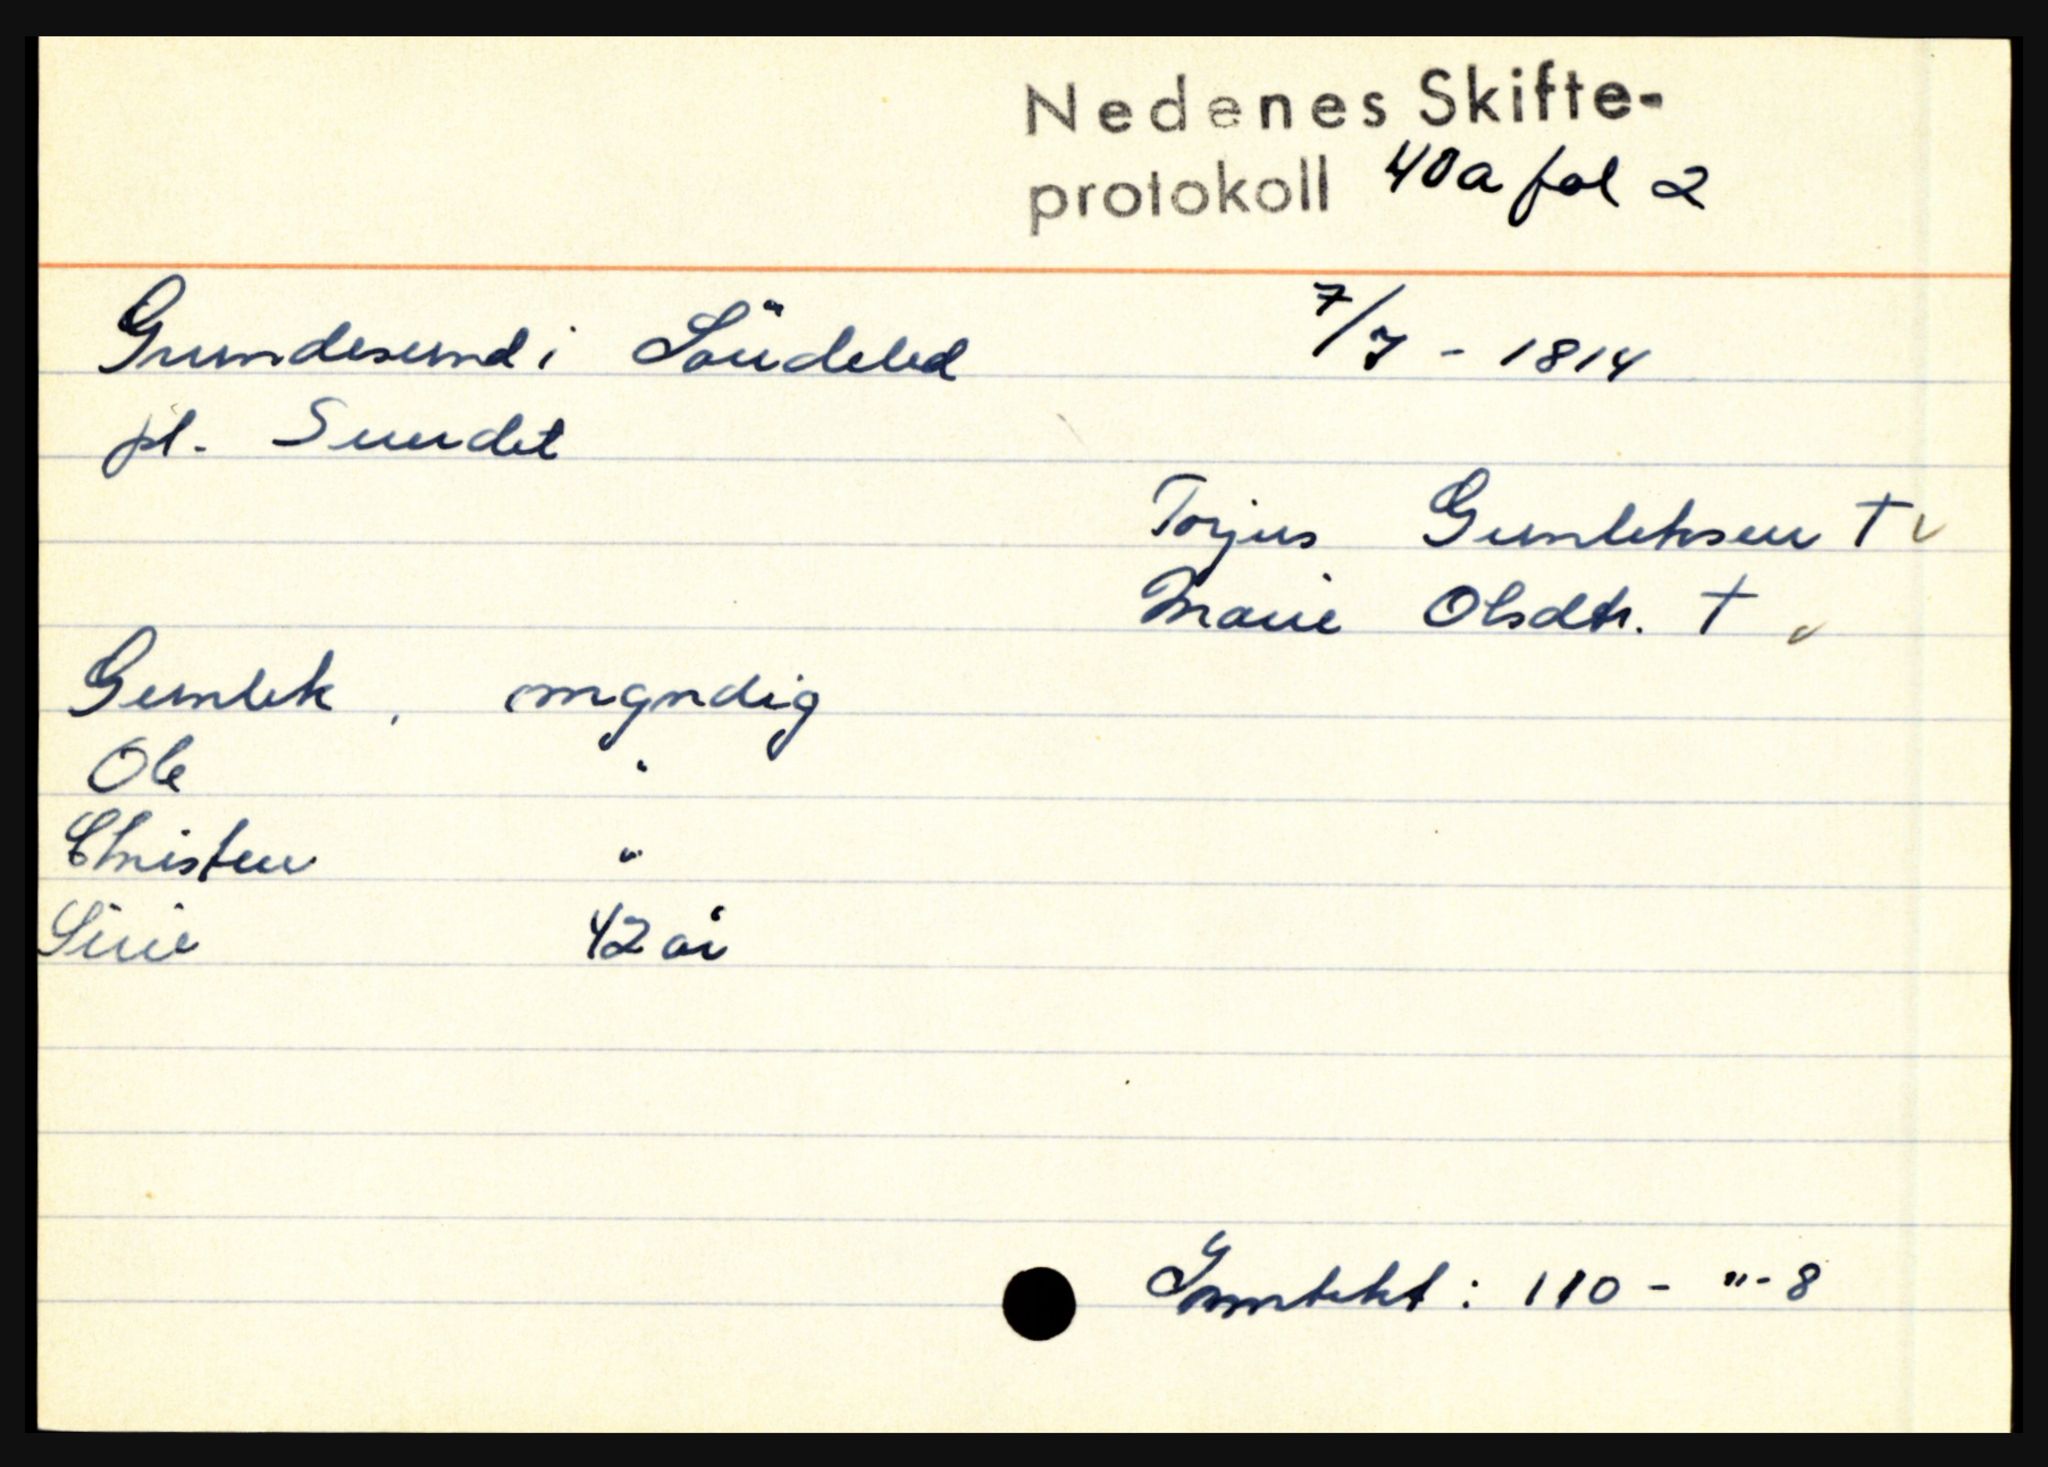 Nedenes Skifte-
protokoll 40a fol 2
Grundesund i Söndeled 7/7 - 1814
pl. Sundet
Torjus Gunleksen †
Marie Olsdtr. †
Gunlek, myndig
Ole "
Christen "
Sirie 42 år
Inntekt: 110 - " - 8